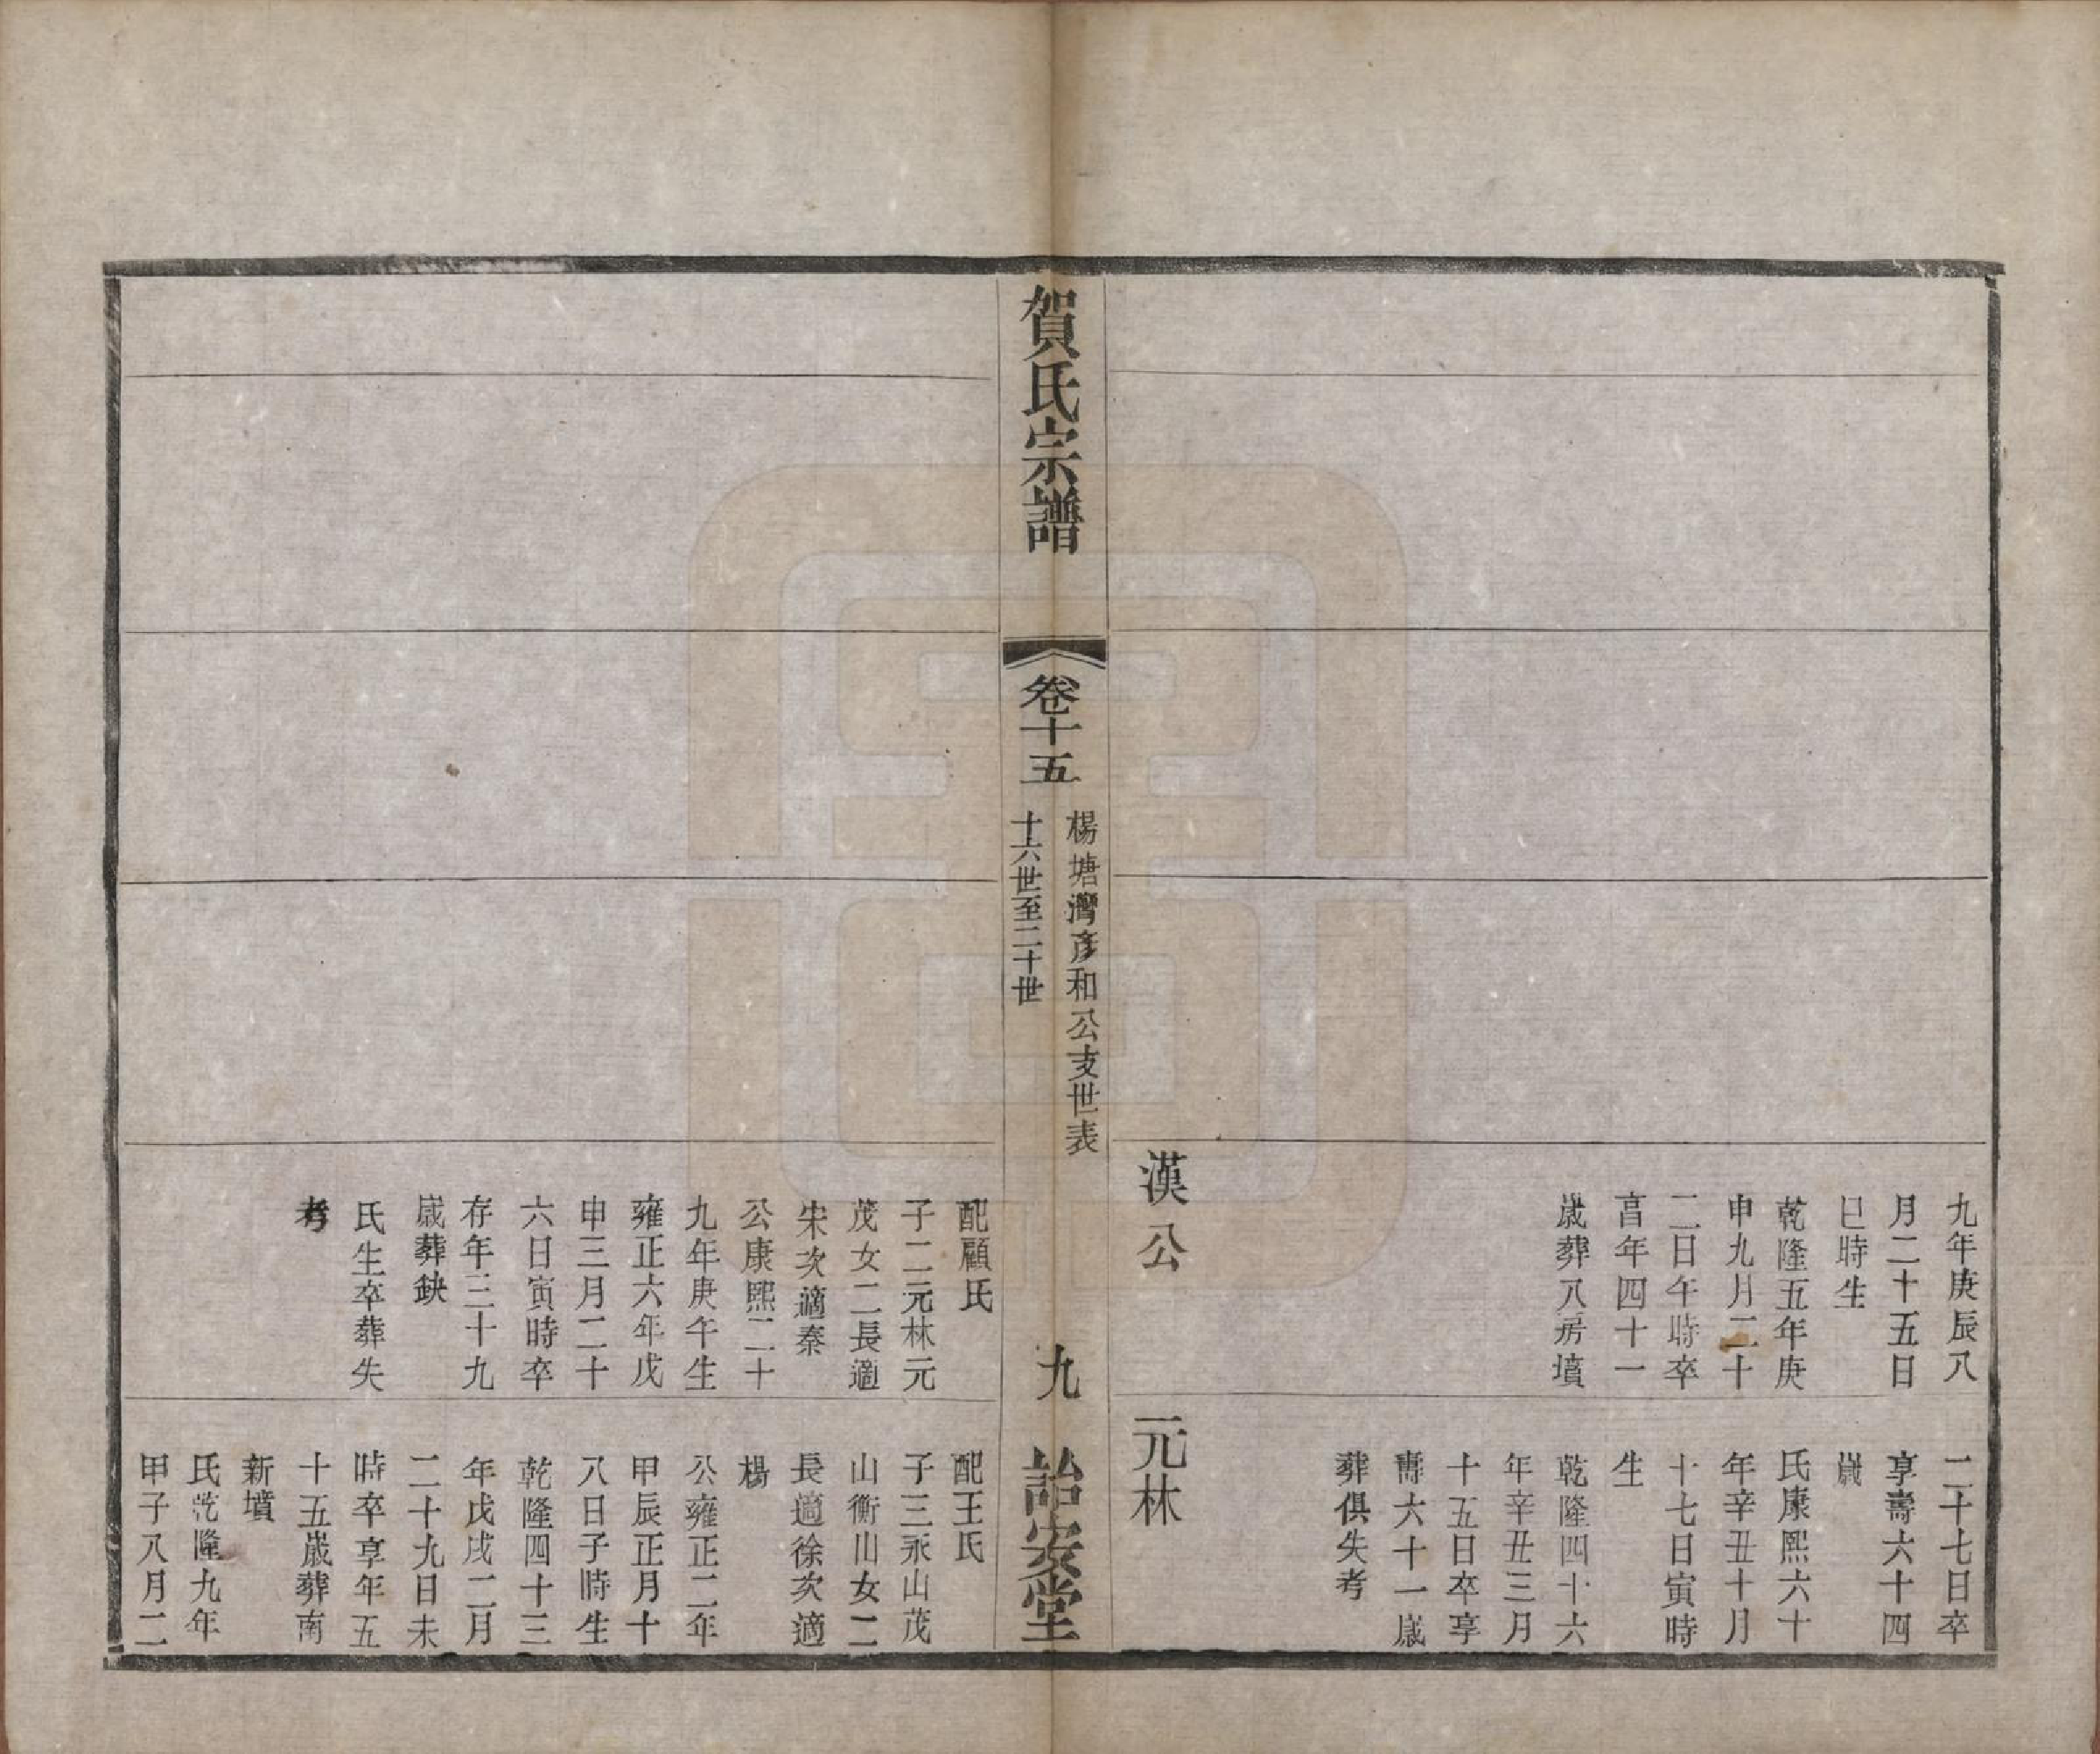 九年庚辰八
月二十五日
巳時生
乾隆五年庚
申九月二十
二日午時卒
享年四十一
歲葬八房墳
漢公
二十七日卒
享壽六十四
歲
氏康熙六十
年辛丑十月
十七日寅時
生
乾隆四十六
年辛丑三月
十五日卒享
壽六十一歲
葬俱失考
元林
賀氏宗譜
卷十五
楊塘灣彥和公支世表
十六世至二十世
九
詒安堂
配顧氏
子二元林元
茂女二長適
宋次適秦
公康熙二十
九年庚午生
雍正六年戊
申三月二十
六日寅時卒
存年三十九
歲葬缺
氏生卒葬失
考
配王氏
子三永山茂
山衡山女二
長適徐次適
楊
公雍正二年
甲辰正月十
八日子時生
乾隆四十三
年戊戌二月
二十九日未
時卒享年五
十五歲葬南
新墳
氏乾隆九年
甲子八月二